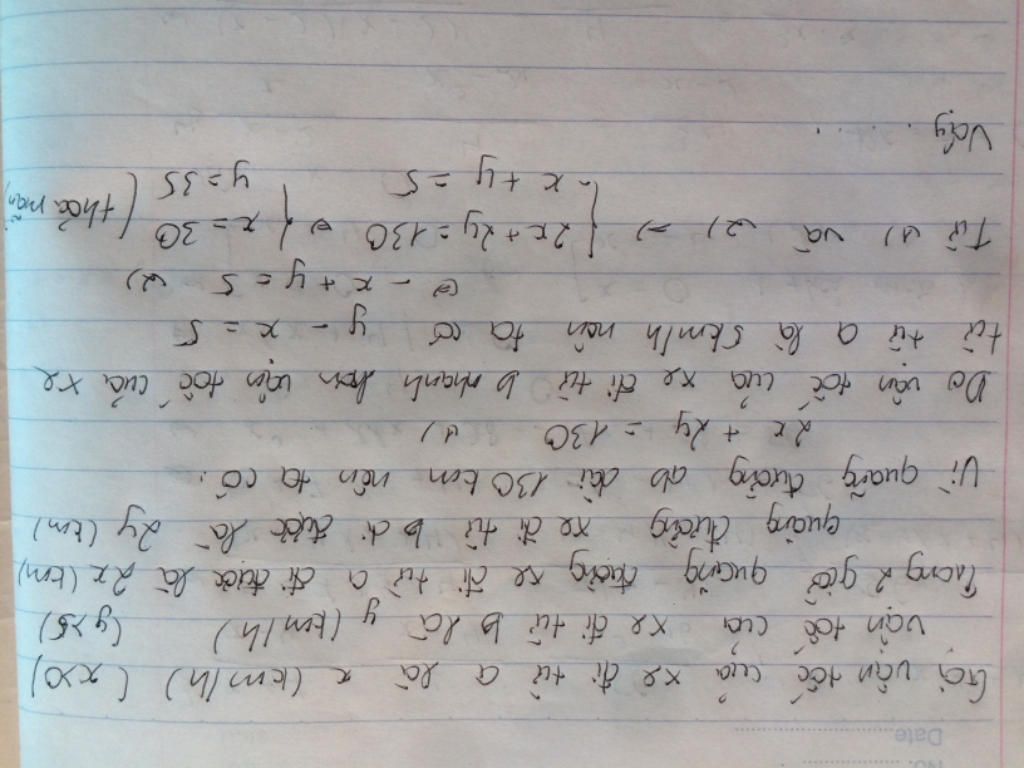 No.
Date
Gọi vận tốc của xe đi từ a là x (km/h) (x>0)
vận tốc của xe đi từ b là y (km/h) (y>5)
Trong 2 giờ quãng đường xe đi từ a đi được là 2x (km)
quãng đường xe đi từ b đi được là 2y (km)
Vì quãng đường ab dài 130 km nên ta có:
2x + 2y = 130 (1)
Do vận tốc của xe đi từ b nhanh hơn vận tốc của xe
từ từ a là 5km/h nên ta có y - x = 5
⇔ - x + y = 5 (2)
Từ (1) và (2) ⇒ { 2x + 2y = 130 ⇔ { x = 30 (thỏa mãn)
- x + y = 5 y = 35
Vậy . . . .